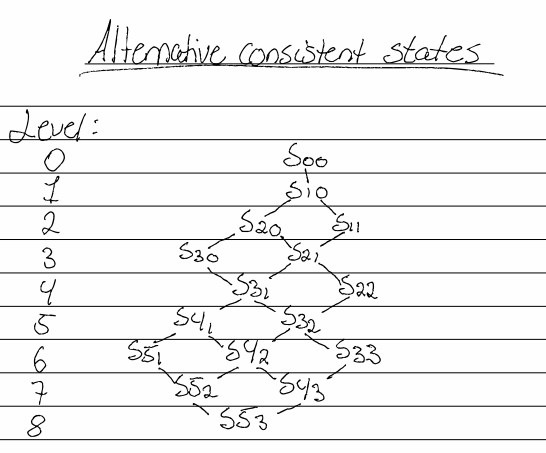 Alternative consistent states
Level:
0 S00
1 S10
2 S20 S11
3 S30 S21
4 S31 S22
5 S41 S32
6 S51 S42 S33
7 S52 S43
8 S53